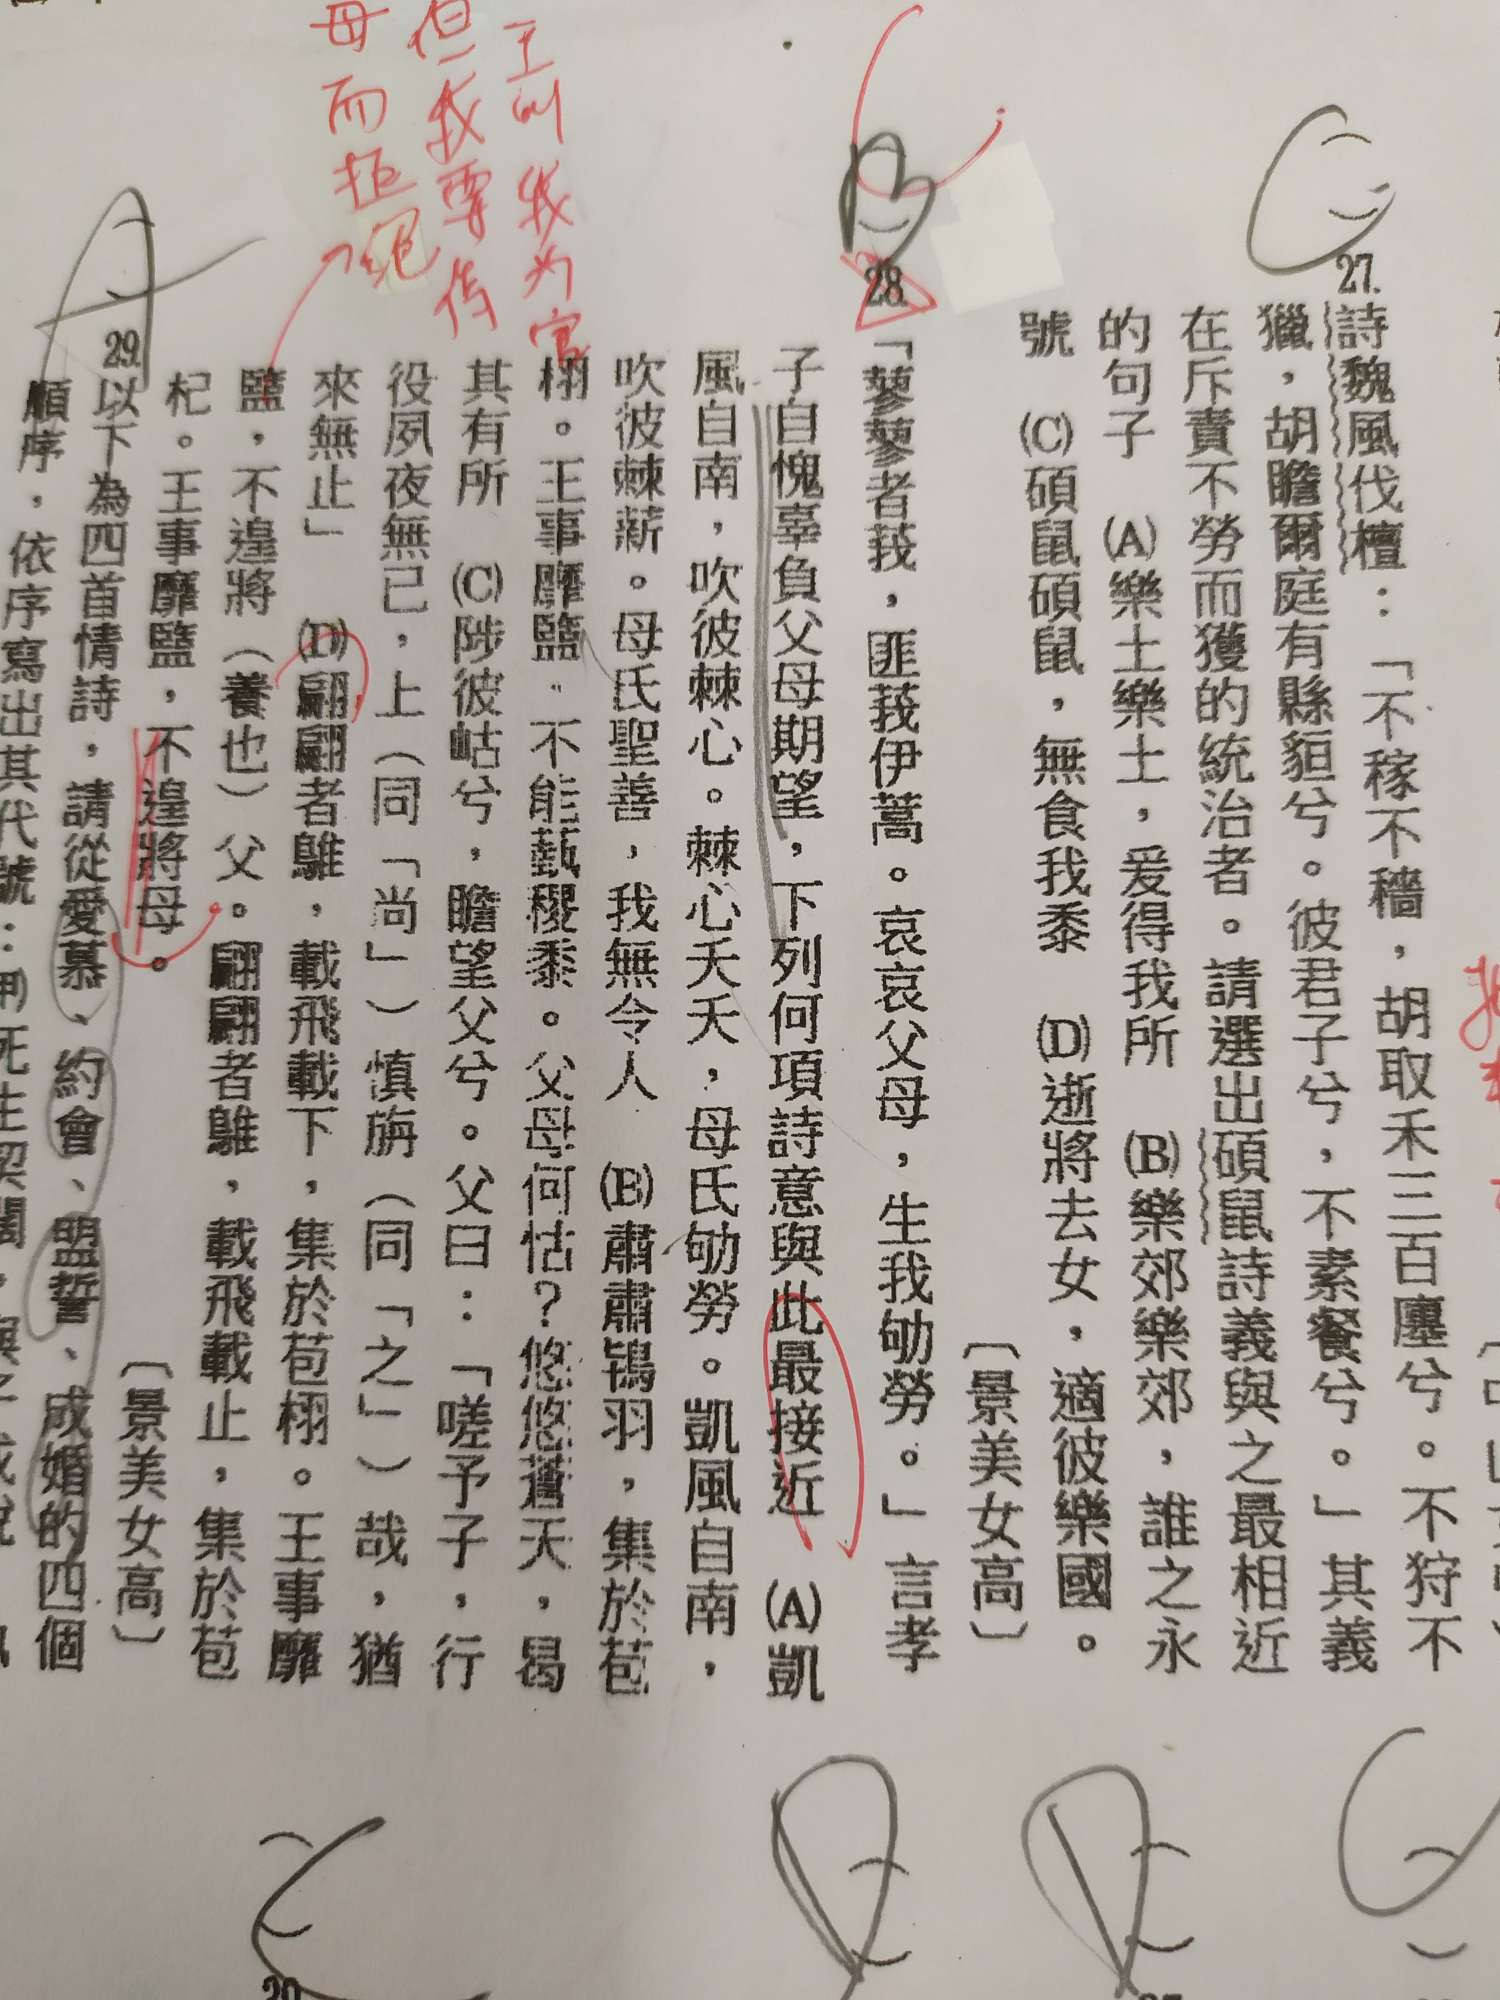 27.詩魏風伐檀：「不稼不穡，胡取禾三百廛兮。不狩不
獵，胡瞻爾庭有縣貆兮。彼君子兮，不素餐兮。」其義
在斥責不勞而獲的統治者。請選出碩鼠詩義與之最相近
的句子 (A)樂土樂土，爰得我所 (B)樂郊樂郊，誰之永
號 (C)碩鼠碩鼠，無食我黍 (D)逝將去女，適彼樂國。
〔景美女高〕
C
28.「蓼蓼者莪，匪莪伊蒿。哀哀父母，生我劬勞。」言孝
子自愧辜負父母期望，下列何項詩意與此最接近 (A)凱
風自南，吹彼棘心。棘心夭夭，母氏劬勞。凱風自南，
吹彼棘薪。母氏聖善，我無令人 (B)肅肅鴇羽，集於苞
栩。王事靡盬，不能蓺稷黍。父母何怙？悠悠蒼天，曷
其有所 (C)陟彼岵兮，瞻望父兮。父曰：「嗟予子，行
役夙夜無已，上（同「尚」）慎旃（同「之」）哉，猶
來無止」 (D)翩翩者鵻，載飛載下，集於苞栩。王事靡
盬，不遑將（養也）父。翩翩者鵻，載飛載止，集於苞
杞。王事靡盬，不遑將母。
〔景美女高〕
B
王叫我为官
但我要侍
母而拒絕
29.以下為四首情詩，請從愛慕、約會、盟誓、成婚的四個
順序，依序寫出其代號：(甲)死生契闊，與子成說
A